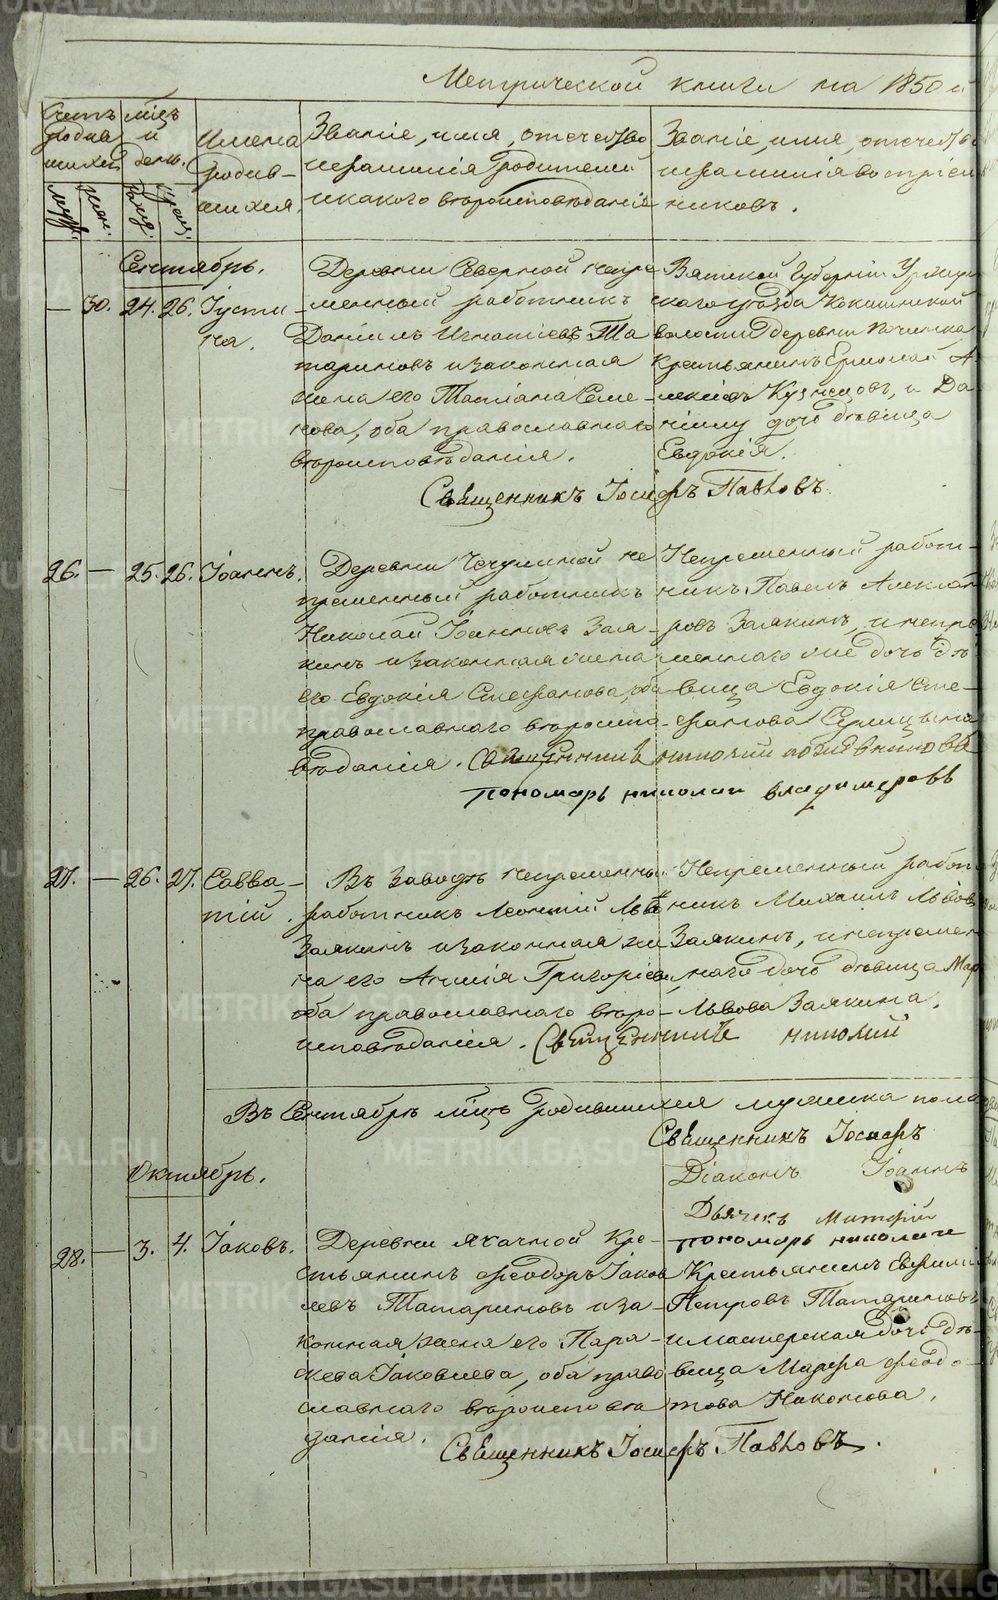 Метрической книги на 1850й
Счетъ родив шихся
муж. жен.
мѣцъ и день.
рожд. крещ.
Имена родив- шихся.
Званіе, имя, отечество и фамилія родителей и какого вѣроисповѣданія
Званіе, имя, отечество и фамилія воспріем никовъ.
Сентябрь.
— 30. 24. 26. Іусти- на.
Деревни Северной непре
менный работникъ
Даніилъ Игнатіевъ Та
тариновъ и законная
жена его Татіана Семе-
нова, оба православнаго
вѣроисповѣданія.
Вятской Губерніи Уржум
скаго уѣзда Кокшинской
волости деревни Починка
Крестьянинъ Ермолай А-
лексіевъ Кузнецовъ, и Да
ніилу дочь дѣвица
Евдокія.
Священникъ Іосифъ Павловъ
26. — 25. 26. Іоаннъ.
Деревни Чечулиной не
премѣнный работникъ
Николай Іоанновъ Заля-
кинъ и законная жена
его Евдокія Стефанова, оба
православнаго вѣроиспо-
вѣданія.
Непременный работ-
никъ Павелъ Александ
ровъ Залякинъ, и непре
меннаго дочь дѣ-
вица Евдокія Сте-
фанова
Священникъ николай
пономарь николай владимеровъ
27. — 26. 27. Савва- тій.
Въ Заводѣ непременный
работникъ Леонтій Льв
Залякинъ и законная же
на его Анисія Григоріева,
оба православнаго вѣро-
исповѣданія.
Непременный работ
никъ Михаилъ Львовъ
Залякинъ, и непремен
наго дочь дѣвица Мар
Львова Залякина.
Священникъ николай
Въ Сентябрѣ мѣцѣ родившихся мужеска пола
Священникъ Іосифъ
Діаконъ Іоаннъ
Дьячекъ Матфій
пономарь николай
Октябрь.
28. — 3. 4. Іаковъ.
Деревни Ячачной Кре-
стьянинъ Феодоръ Іаков
левъ Татариновъ и за-
конная жена его Пара-
скева Іаковлева, оба право
славнаго вѣроисповѣ
данія.
Крестьянинъ Евфимій
Петровъ Татариновъ
и мастерская дочь дѣ-
вица Марфа Феодо-
това Никонова.
Священникъ Іосифъ Павловъ.
METRIKI.GASO-URAL.RU